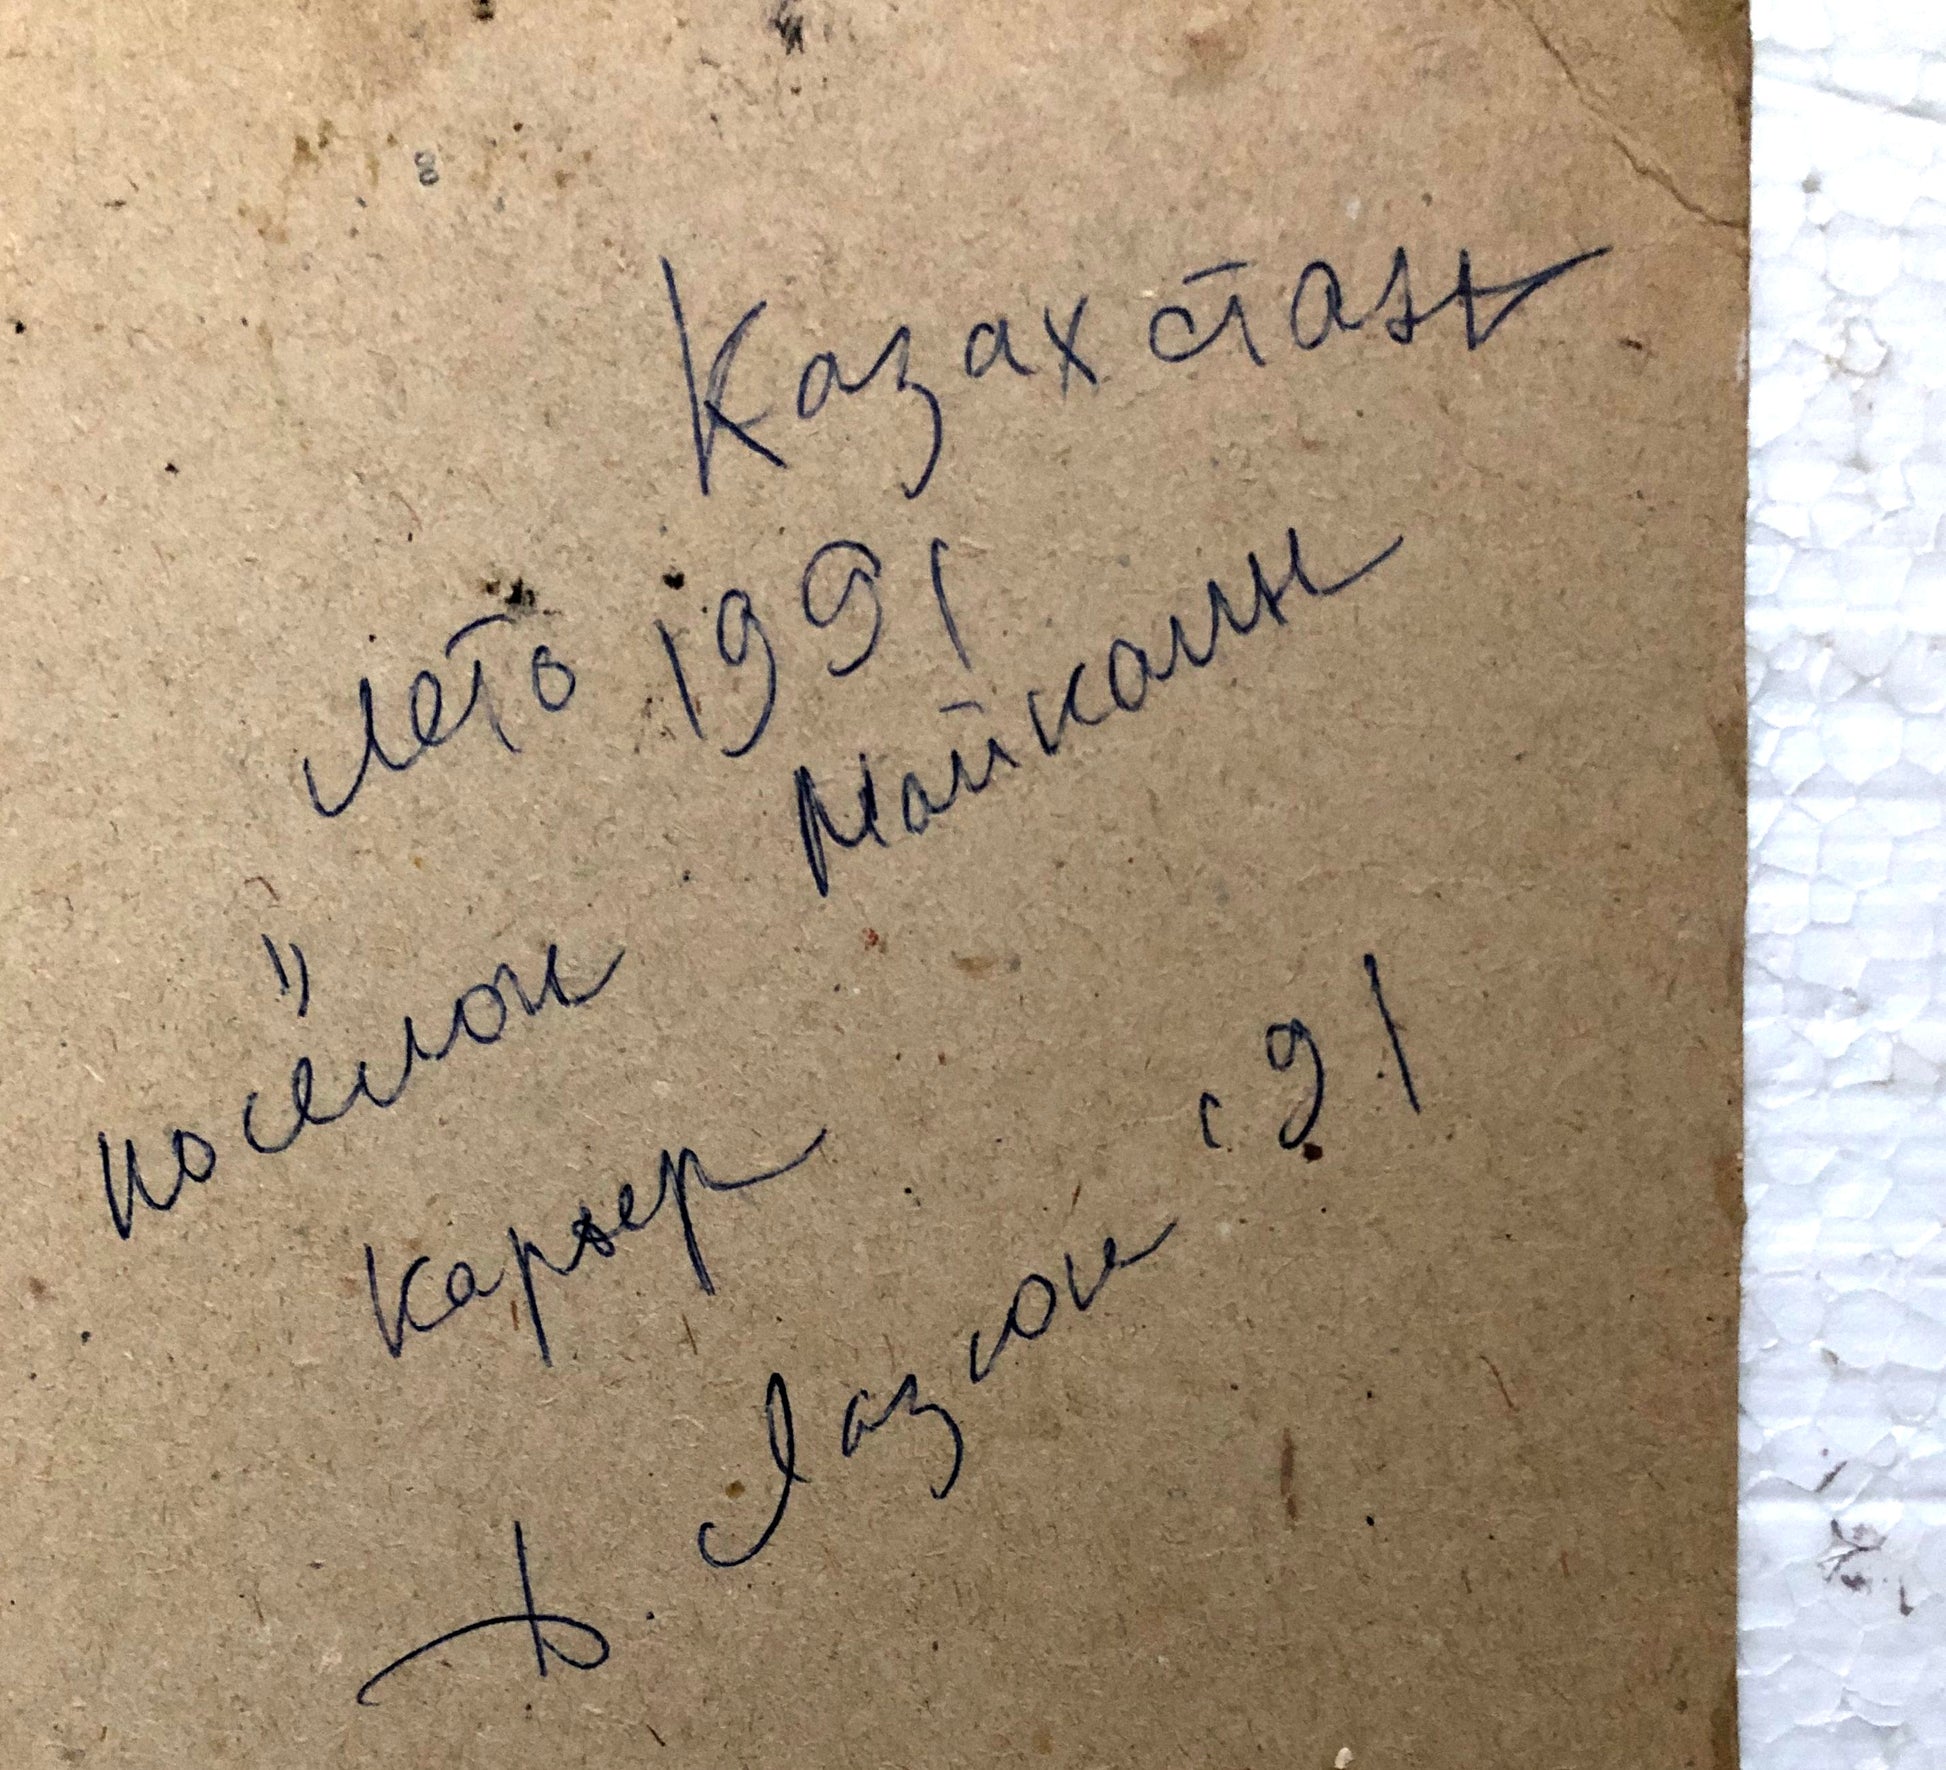 Казахстан
лето 1991
посёлок Майкаин
карьер
Лазков 91